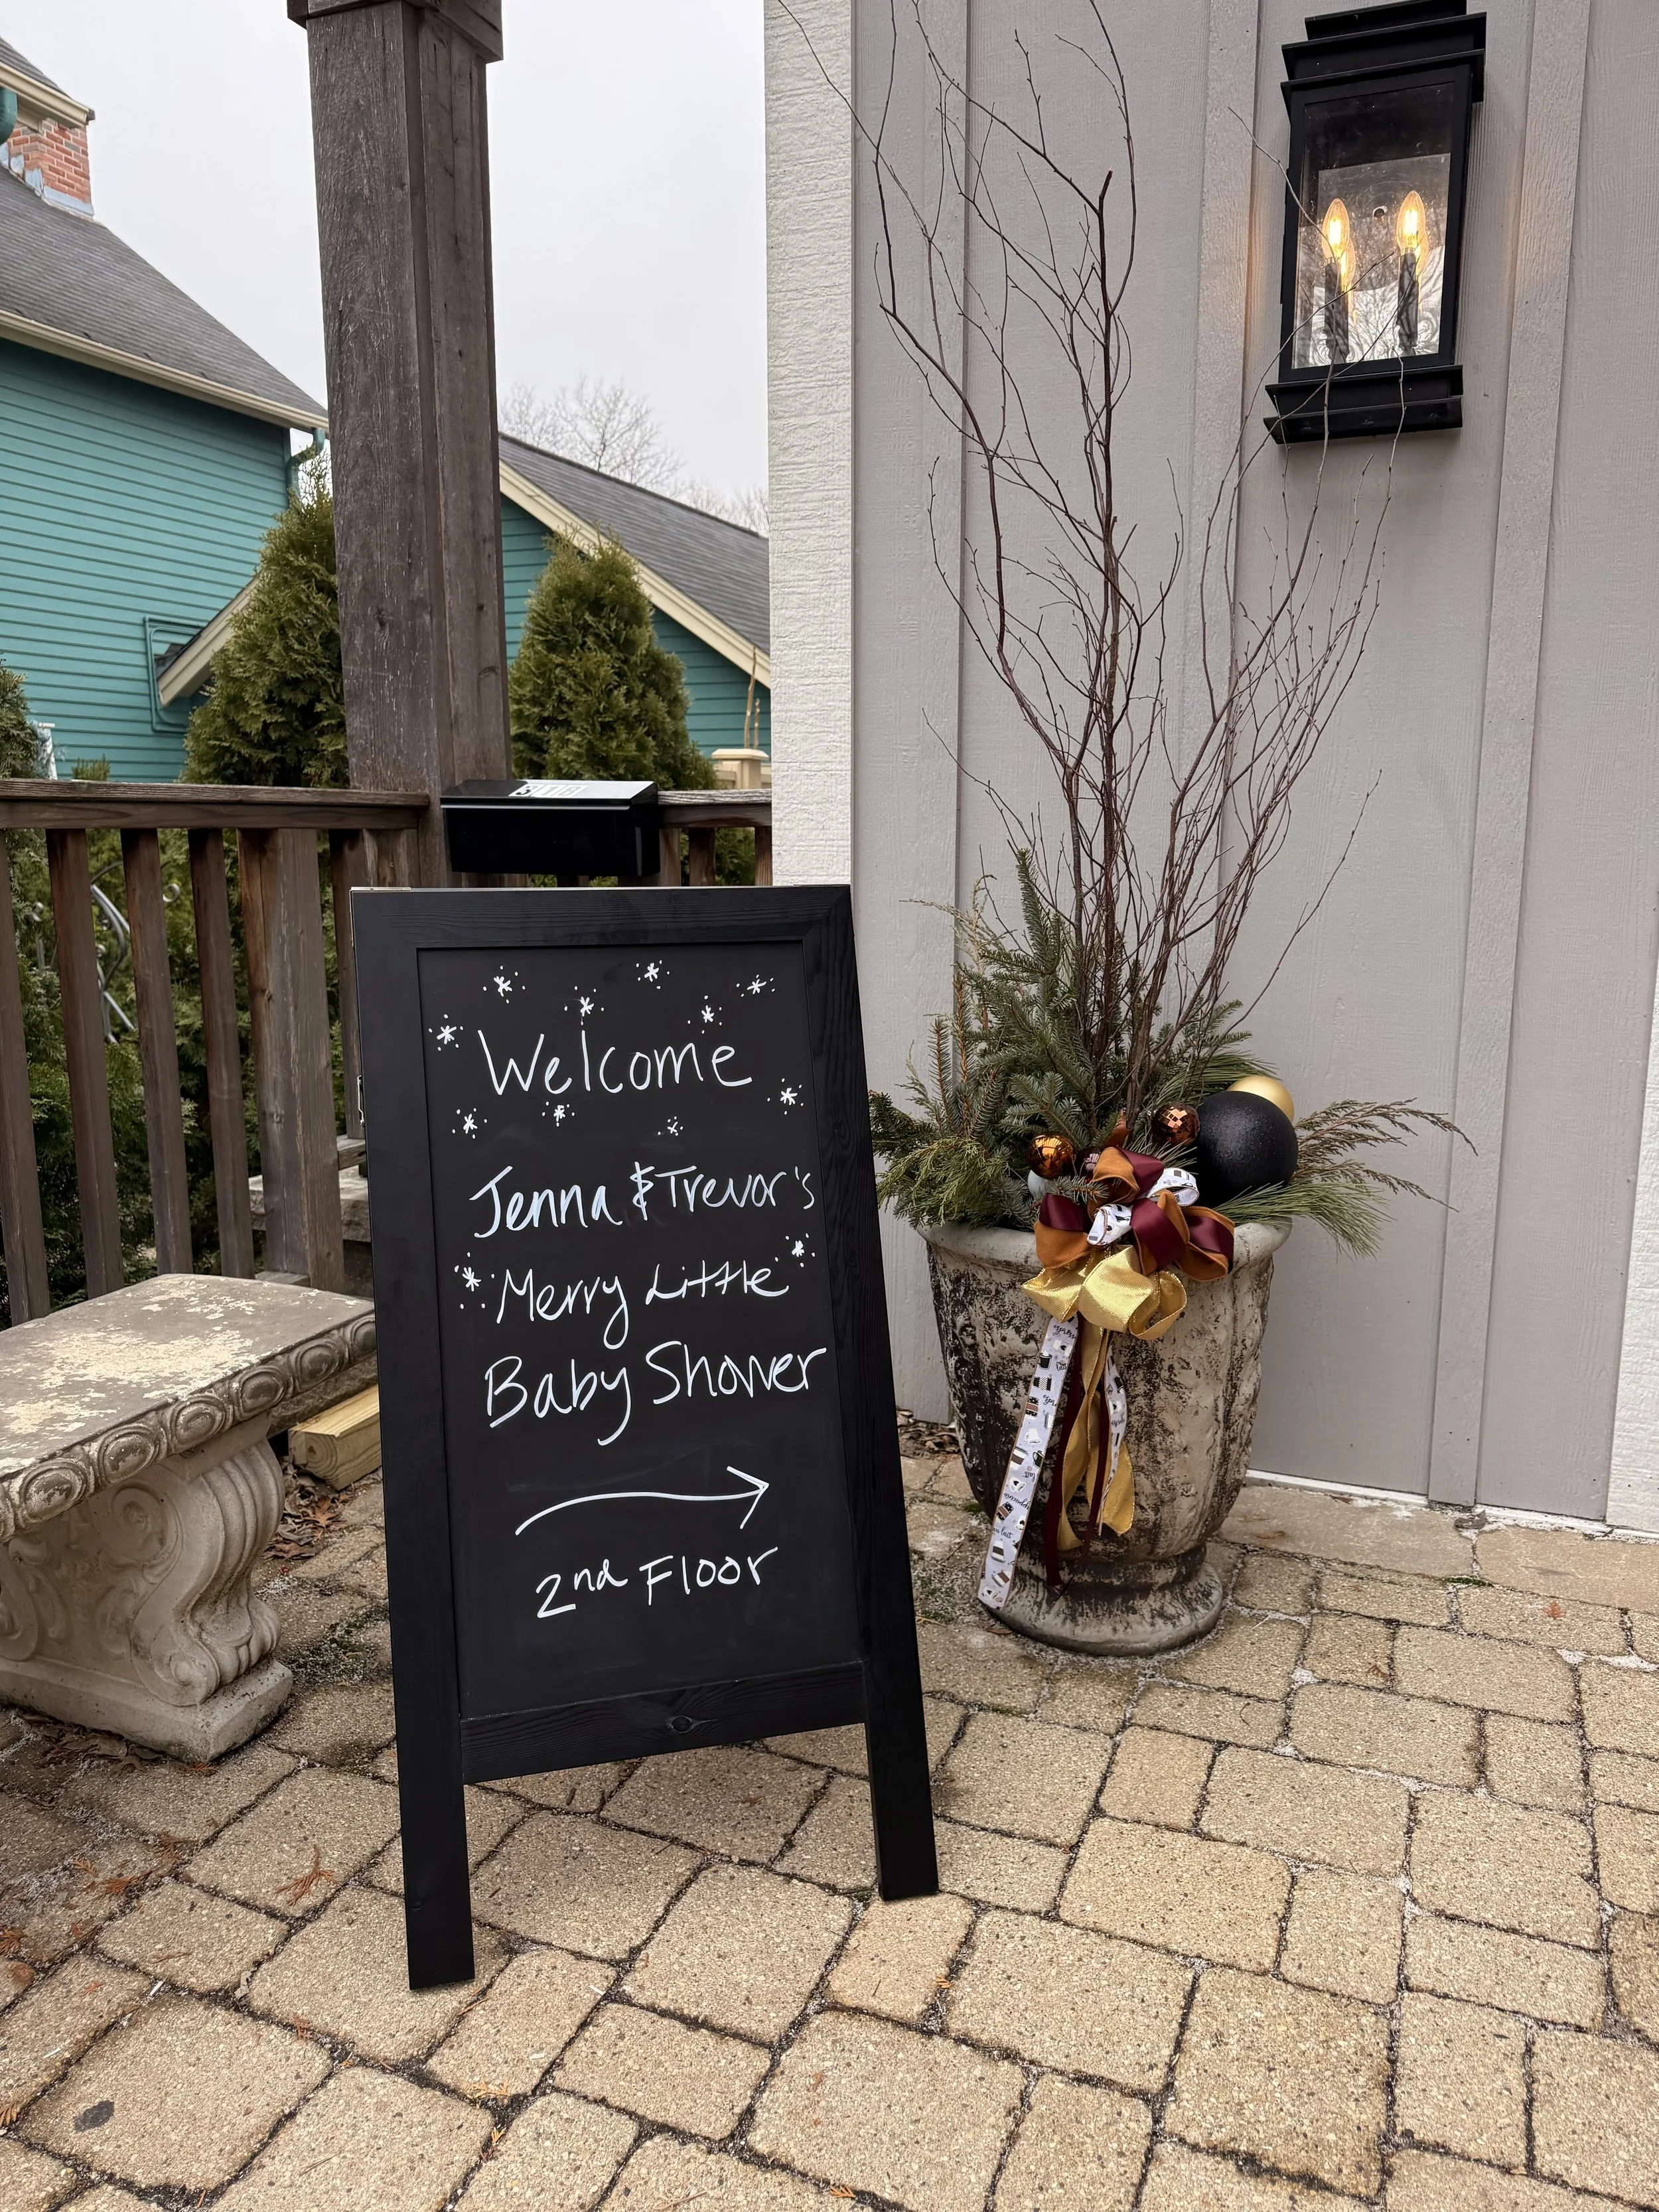 Welcome
Jenna & Trevor's
Merry Little
Baby Shower
2nd Floor